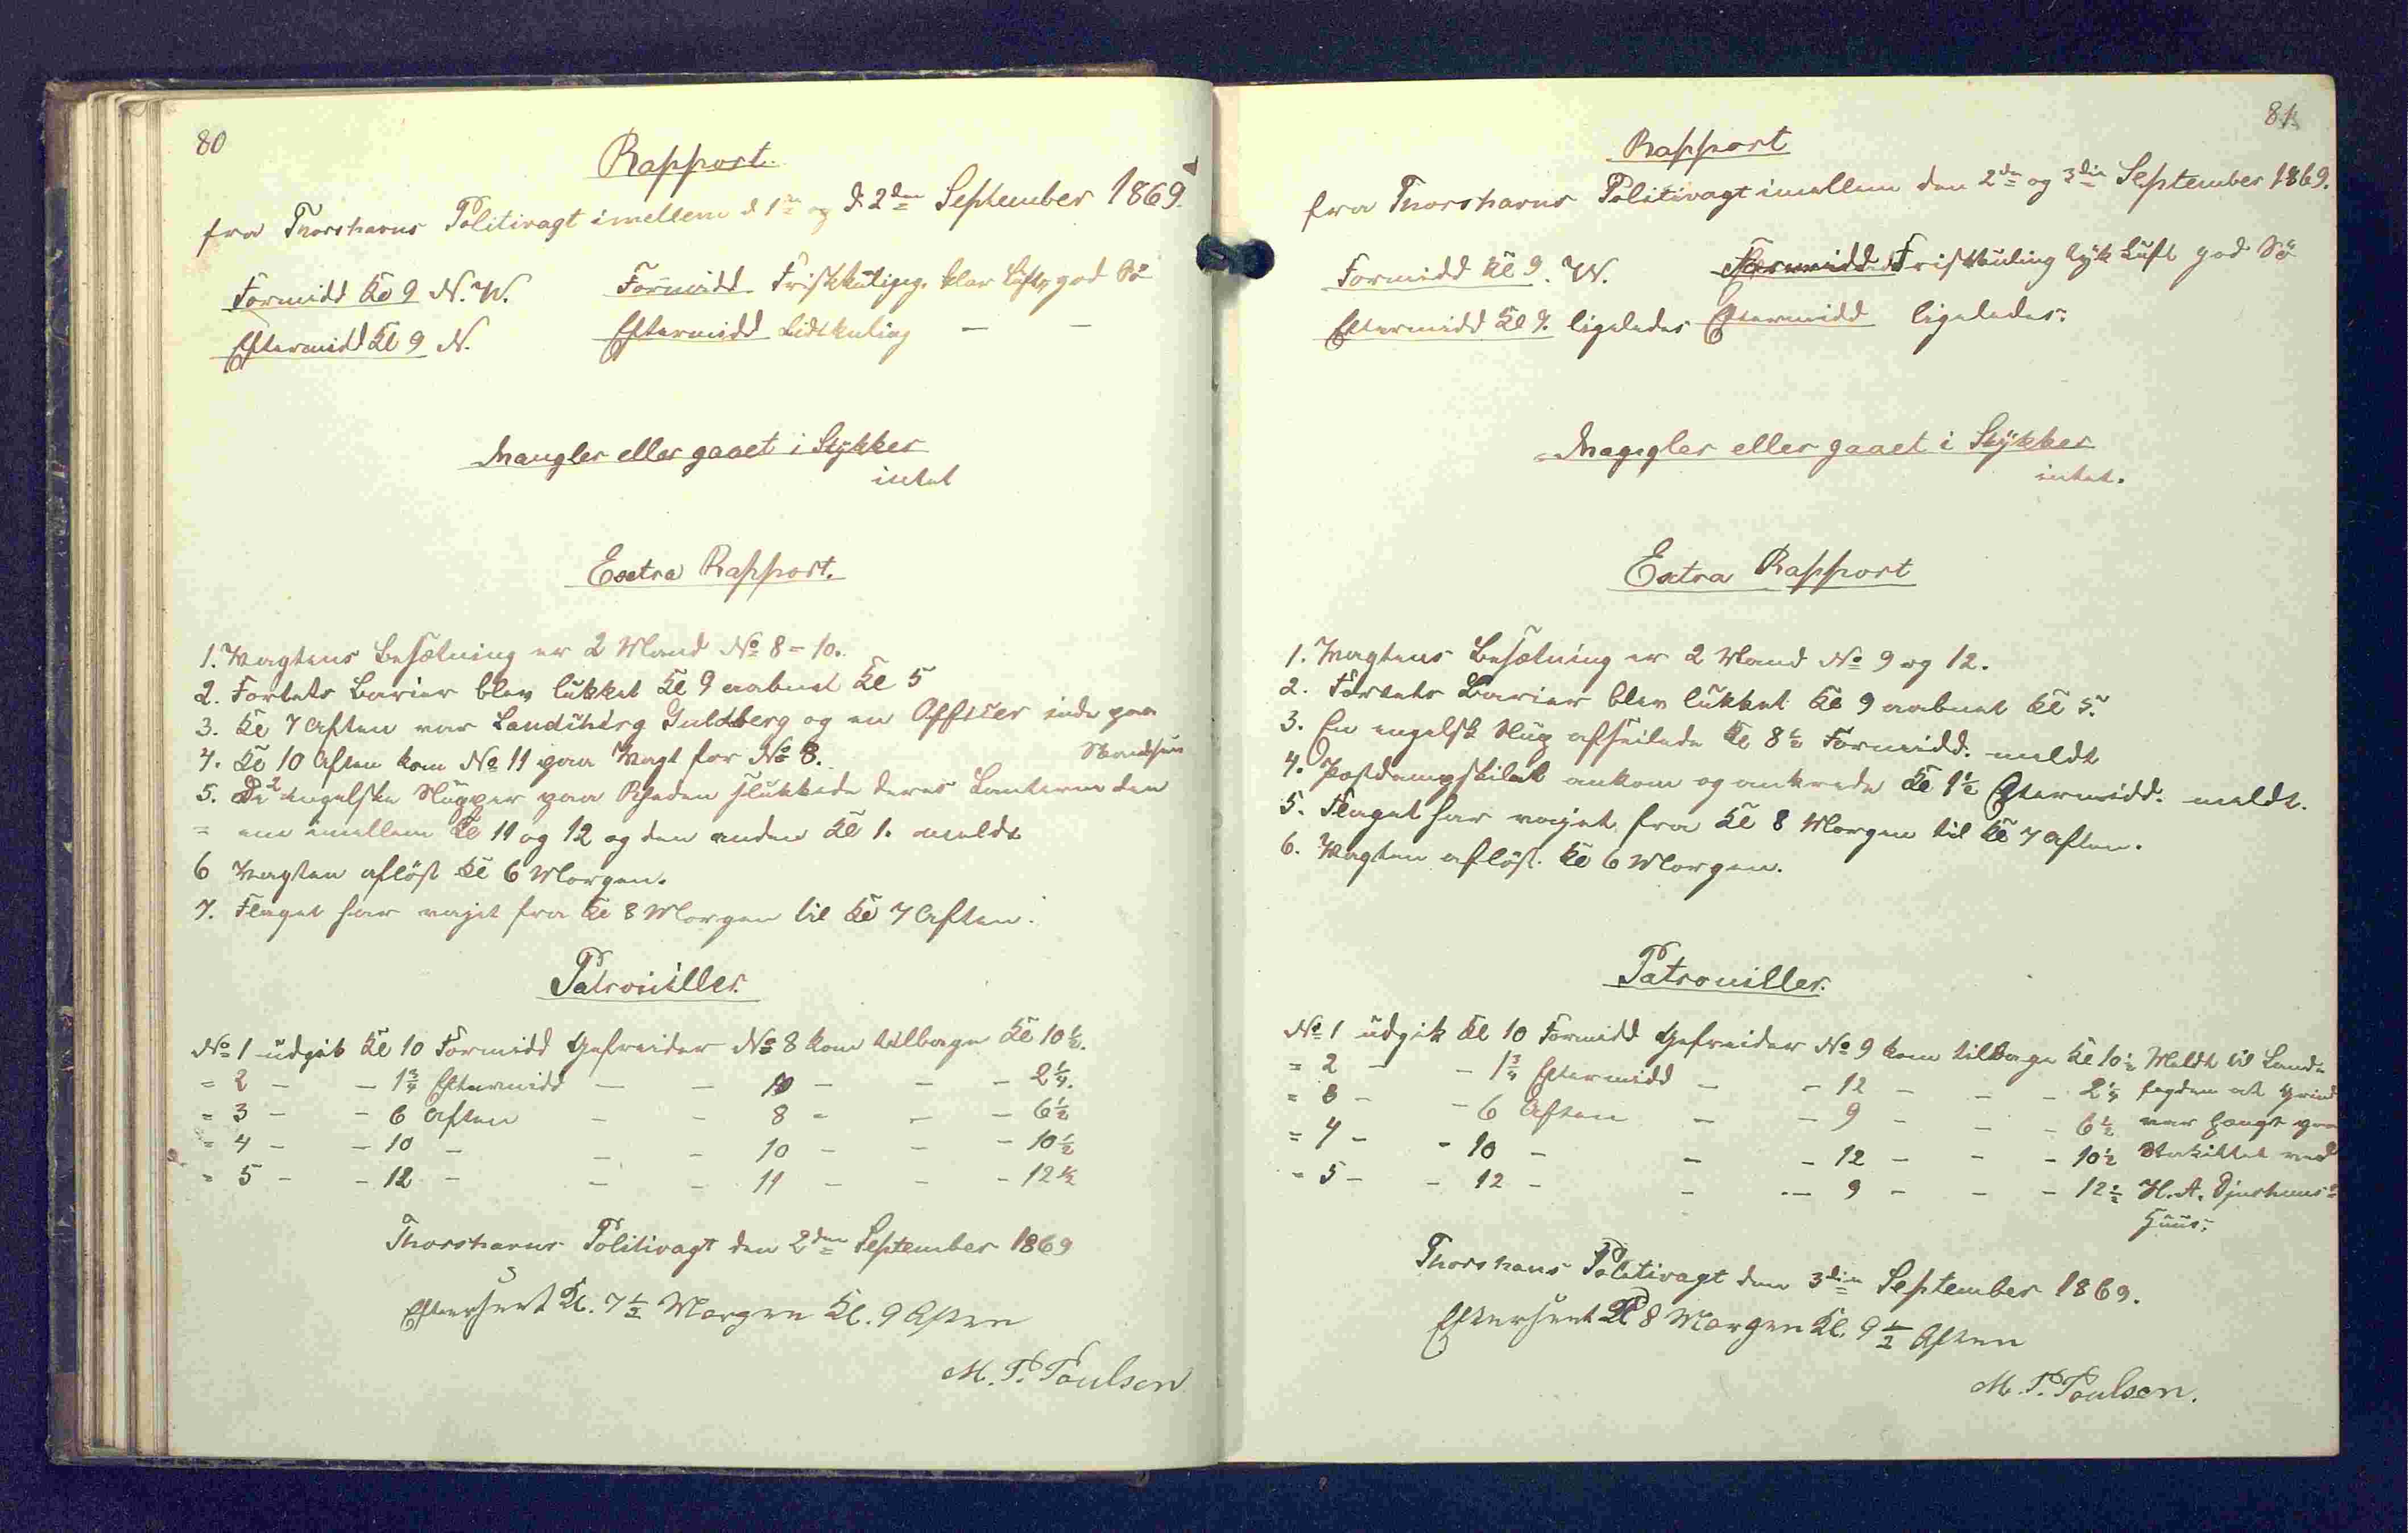 80
Rapport.
fra Thorshavns Politivagt imellem d 1ste og d 2den September 1869.
Formidd Kl 9 N.W. Formidd Friskkuling, klar Luft, god Sö
Eftermidd Kl 9 N. Eftermidd Lidtkuling — —
Mangler eller gaaet i Stykker
intet
Extra Rapport.
1. Vagtens Besætning er 2 Mand No 8 = 10.
2. Fortets Barier blev lukket Kl 9 aabnet Kl 5
3. Kl 7 Aften var Landchirg Guldberg og en Officer inde paa
4. Kl 10 Aften kom No 11 paa Vagt for No 8.
5. De 2 engelske Slupper paa Rheden slukkede deres Lanterne den
= ene imellem Kl 11 og 12 og den anden Kl 1. meldt
6 Vagten aflöst Kl 6 Morgen.
7. Flaget har vajet fra Kl 8 Morgen til Kl 7 Aften.
Patrouiller.
No 1 udgik Kl 10 Formidd Gefreider No 8 kom tilbage Kl 10½.
= 2 - - 1¾ Eftermidd — - 10 - - - 2¼.
= 3 - - 6 Aften - - 8 - - - 6½
= 4 - - 10 - - - 10 - - - 10½
= 5 - - 12 - - - 11 - - - 12½
Thorshavns Politivagt den 2den September 1869
Efterseet Kl. 7½ Morgen Kl. 9 Aften
M. P. Poulsen
81
Rapport
fra Thorshavns Politivagt imellem den 2den og 3die September 1869.
Formidd Kl 9. W. Formidd Friskkuling tyk Luft god Sö
Eftermidd Kl 9. ligeledes Eftermidd ligeledes.
Mangler eller gaaet i Stykker
intet.
Extra Rapport
1. Vagtens Besætning er 2 Mand No 9 og 12.
2. Fortets Barier blev lukket Kl 9 aabnet Kl 5.
3. En engelsk Slup afseilede Kl 8½ Formidd. meldt
4. Postdampskibet ankom og ankrede Kl 1½ Eftermidd. meldt.
5. Flaget har vajet fra Kl 8 Morgen til Kl 7 Aften.
6. Vagten aflöst Kl 6 Morgen.
Patrouiller.
No 1 udgik Kl 10 Formidd Gefreider No 9 kom tilbage Kl 10½ Meldt til Land=
= 2 - - 1¾ Eftermidd - - 12 - - - 2¼ fogden at Grind
= 3 - - 6 Aften - - 9 - - - 6½ var hængt paa
= 4 - - 10 - - - 12 - - - 10½ Stakittet ved
= 5 - - 12 - - - 9 - - - 12½ H. A. Djurhuus=
Huus.
Thorshavns Politivagt den 3die September 1869.
Efterseet Kl 8 Morgen Kl. 9½ Aften
M. P. Poulsen.